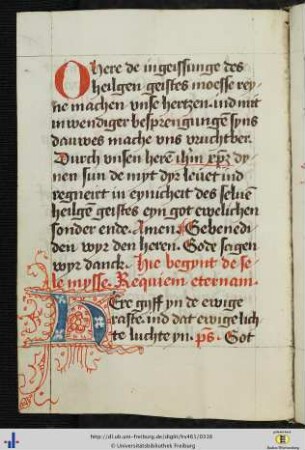 O here de ingeissunge des
heilgen geistes moesse rey-
ne machen vnse hertzen. ind mit
inwendiger besprengunge syns
dauwes mache vns vruchtber.
Durch vnsen herē ihm xpm dy
nen sun de myt dyr leuet ind
regneirt in eynicheit des seluē
heilgē geistes eyn got ewelichen
sonder ende. Amen. Gebenedi
den wyr den heren. Gode seigen
wyr danck. Hie begynt de se
le mysse. Requiem eternam.
Here gyff yn de ewige
raste. ind dat ewige lich
te luchte yn. ps. Got
http://dl.ub.uni-freiburg.de/diglit/hs463/0338
© Universitätsbibliothek Freiburg
Baden-Württemberg